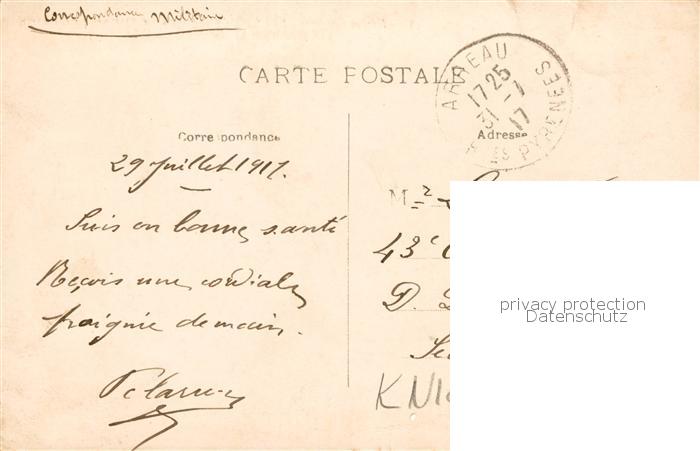 Correspondance Militaire
CARTE POSTALE
ARREAU
17 25
31 -7
17
PYRENEES
Correspondance
Adresse
29 Juillet 1917.
Suis en bonne santé
Reçois une cordiale
poignée de main.
M
43e
D.
privacy protection
Datenschutz